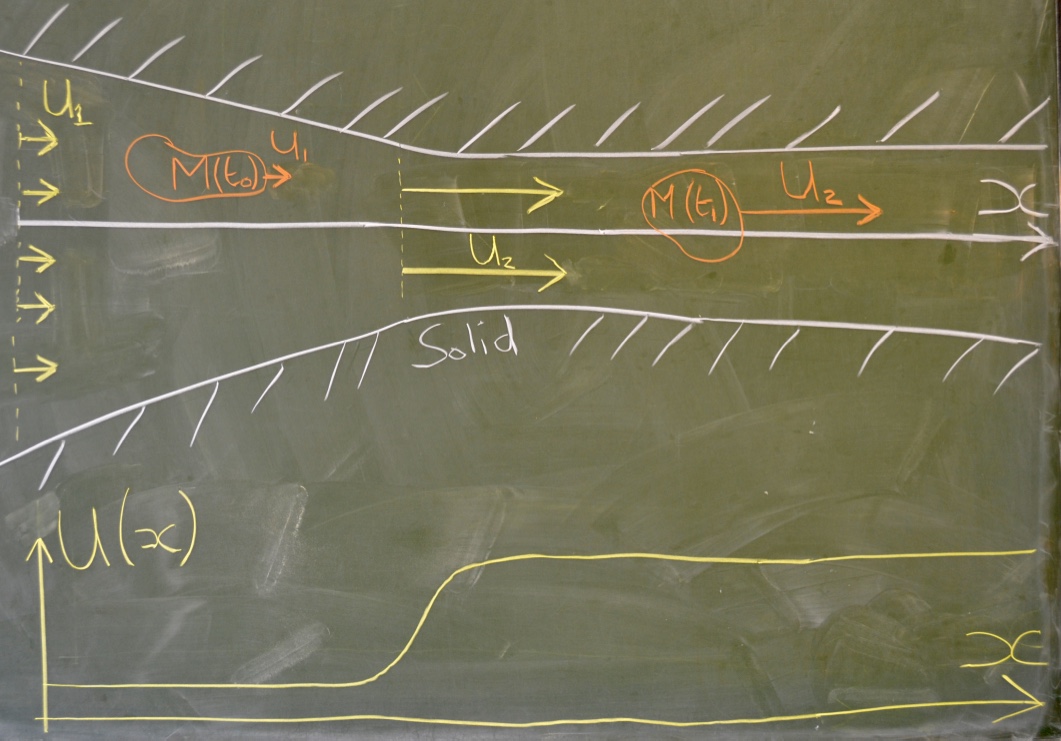 U₁
M(t₀) U₁
M(t₁) U₂
x
U₂
Solid
U(x)
x